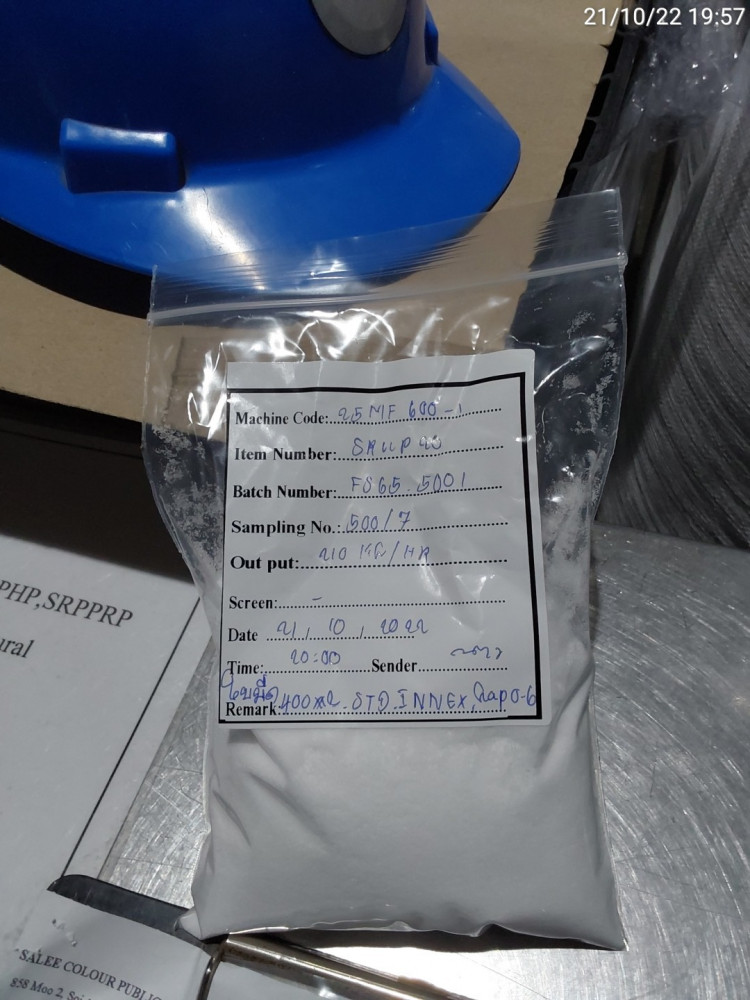 21/10/22 19:57
Machine Code: 25 MF 600-1
Item Number:
Batch Number: FS65.5001
Sampling No.: 500/7
Out put: 210 KG/HR
Screen: -
Date 21, 10, 2022
Time: 20:00 Sender
ใบมีด
Remark: 400x2. STD. INNEX, Gap 0.6
PHP,SRPPRP
ural
"SALEE COLOUR PUBLIC
858 Moo 2, Soi